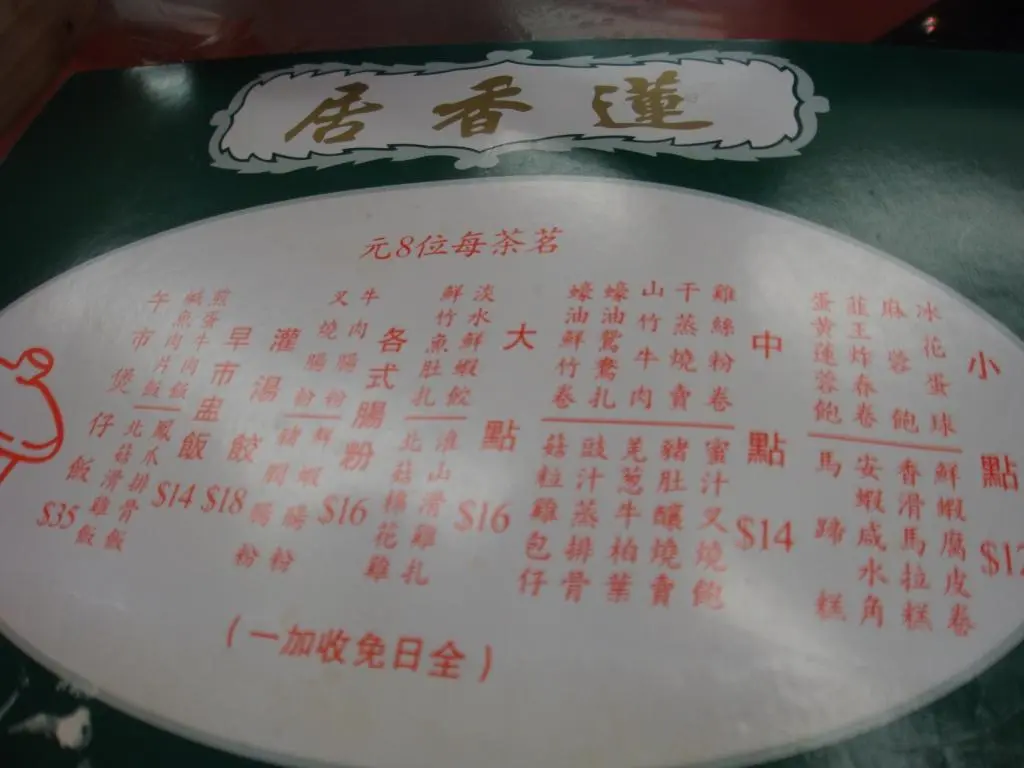 蓮香居
茗茶每位8元
小點 $12
冰花蛋球
麻蓉飽
韮王炸春卷
蛋黃蓮蓉飽
鮮蝦腐皮卷
香滑馬拉糕
安蝦咸水角
馬蹄糕
中點 $14
雞絲粉卷
干蒸燒賣
山竹牛肉
蠔油鴛鴦扎
蠔油鮮竹卷
蜜汁叉燒飽
豬肚釀燒賣
羌葱牛柏葉
豉汁蒸排骨
菇粒雞包仔
大點 $16
淡水鮮蝦餃
鮮竹魚肚扎
淮山滑雞扎
北菇棉花雞
各式腸粉 $16
牛肉腸粉
叉燒腸粉
鮮蝦腸粉
豬膶腸粉
灌湯餃 $18
早市盅飯 $14
煎蛋牛肉飯
鹹魚肉片飯
鳳爪排骨飯
北菇滑雞飯
午市煲仔飯 $35
(全日免收加一)